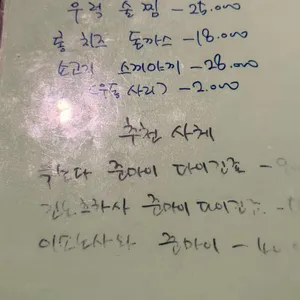 우럭 술찜 -25.000
통 치즈 돈까스 -18.000
소고기 스끼야끼 -28.000
(우동 사리) -2.000
추천 사케
쿠보다 준마이 다이긴죠 - 9
준마이 다이긴죠 -
준마이 -